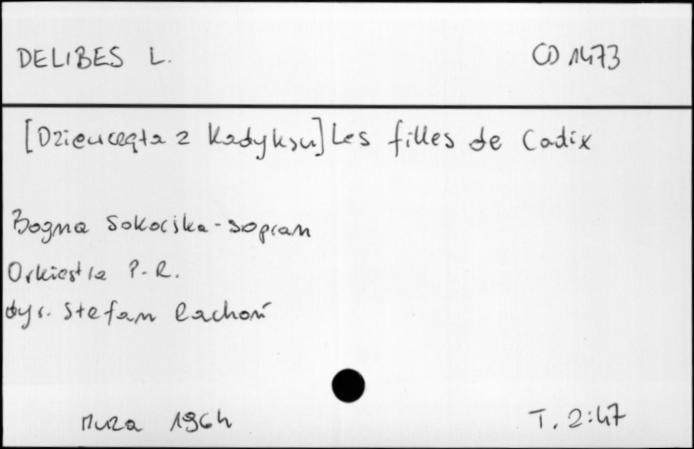 DELIBES L. CD 1473
[Dziewczęta z Kadyksu] Les filles de Cadix
Bogna Sokorska - sopran
Orkiestra P.R.
dyr. Stefan Rachoń
Muza 1964
T. 2:47